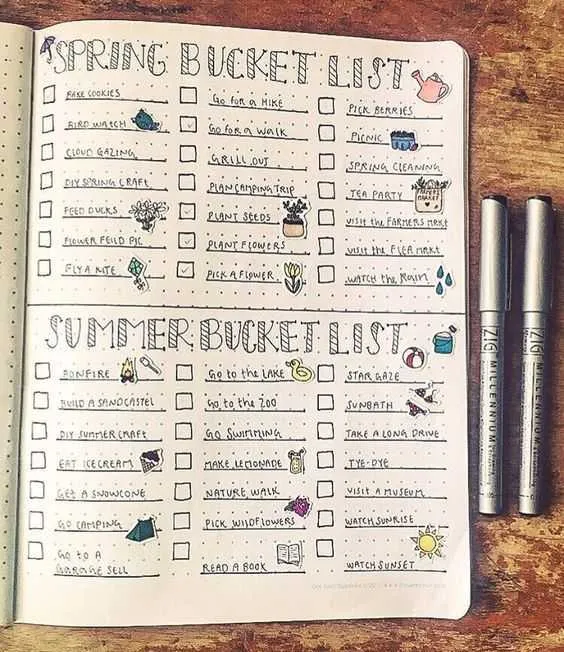 SPRING BUCKET LIST
BAKE COOKIES
BIRD WATCH
CLOUD GAZING
DIY SPRING CRAFT
FEED DUCKS
FLOWER FEILD PIC
FLY A KITE
GO FOR A HIKE
GO FOR A WALK
GRILL OUT
PLAN CAMPING TRIP
PLANT SEEDS
PLANT FLOWERS
PICK A FLOWER
PICK BERRIES
PICNIC
SPRING CLEANING
TEA PARTY
FARMERS MARKET
VISIT the FARMERS MRKT
VISIT the FLEA MRKT
WATCH the RAIN
SUMMER BUCKET LIST
BONFIRE
BUILD A SANDCASTEL
DIY SUMMER CRAFT
EAT ICECREAM
GET A SNOWCONE
GO CAMPING
GO TO A
GARAGE SELL
GO to the LAKE
GO to the ZOO
GO SWIMMING
MAKE LEMONADE
NATURE WALK
PICK WILDFLOWERS
READ A BOOK
STAR GAZE
SUNBATH
TAKE A LONG DRIVE
TYE-DYE
VISIT A MUSEUM
WATCH SUNRISE
WATCH SUNSET
ZIG MILLENNIUM
ZIG MILLENNIUM